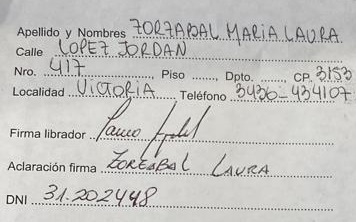 Apellido y Nombres ZORZABAL MARIA LAURA
Calle LOPEZ JORDAN
Nro. 417 Piso ...... Dpto. ...... CP. 3153
Localidad VICTORIA Teléfono 3436-434107
Firma librador
Aclaración firma ZORZABAL LAURA
DNI 31.202448